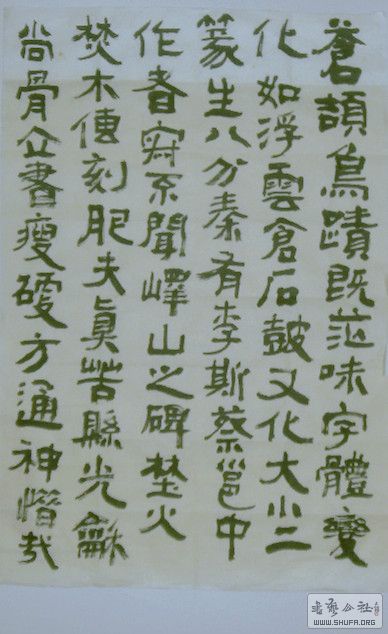 蒼頡鳥蹟既茫味字體變
化如浮雲倉石鼓又化大小二
篆生八分秦有李斯蔡邕中
作者寂不聞嶧山之碑埜火
焚木傳刻肥夫眞苦縣光龢
尚骨立書瘦硬方通神惜哉
書藝公社
WWW.SHUFA.ORG